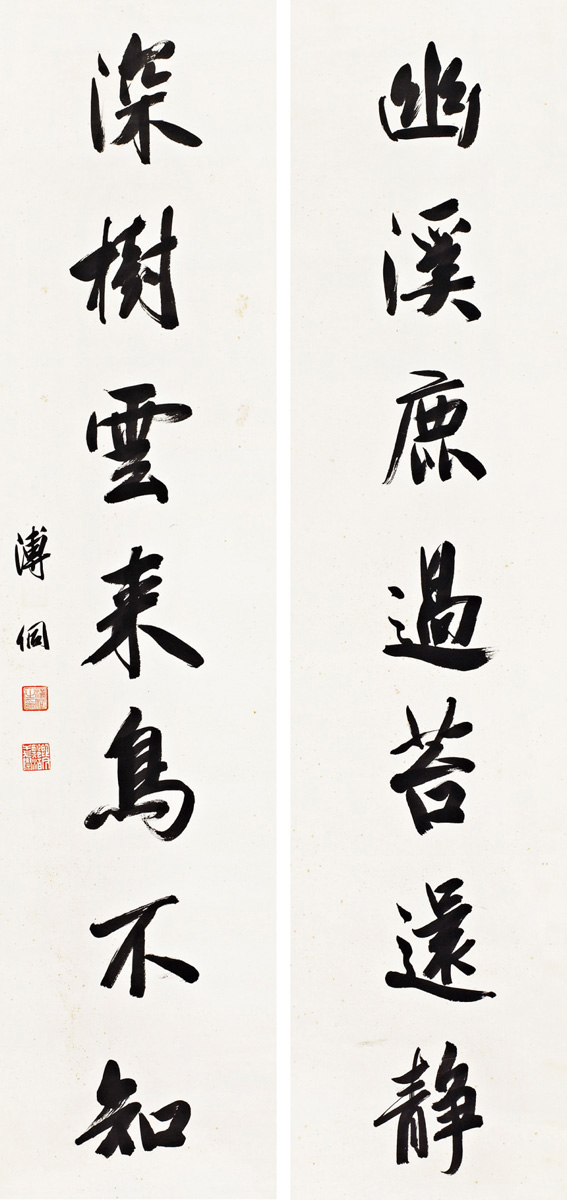 幽溪鹿過苔還静
深樹雲来鳥不知
溥侗